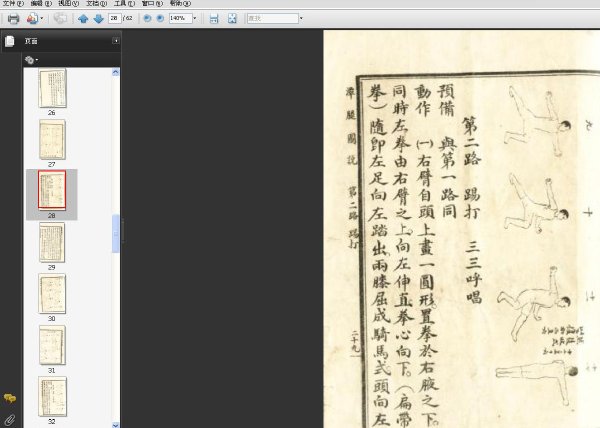 文件(F) 编辑(E) 视图(V) 文档(D) 工具(T) 窗口(W) 帮助(H)
28 / 62 140% 查找
页面
26
27
28
29
30
31
32
九
十
第二路 踢打 三三呼唱
預備 與第一路同
動作 ㈠右臂自頭上畫一圓形置拳於右腋之下。
同時左拳由右臂之上向左伸直拳心向下。（扁帶
拳）隨卽左足向左踏出兩膝屈成騎馬式頭向左
潭腿圖說 第二路 踢打 二十九